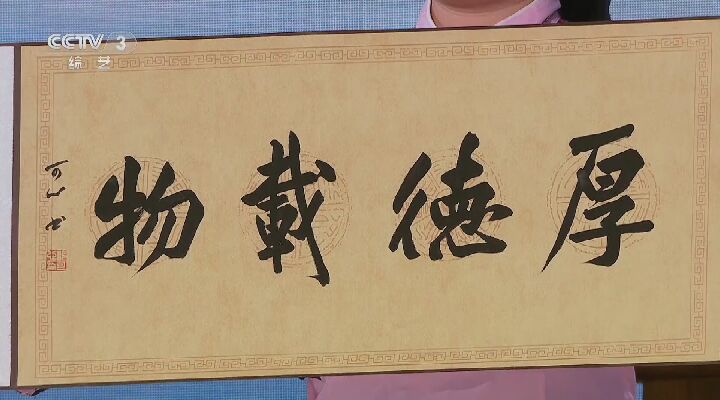 CCTV 3
综艺
厚德載物